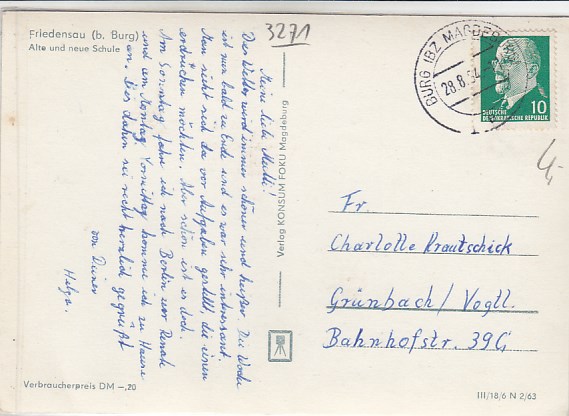 Friedensau (b. Burg)
Alte und neue Schule
3271
Meine liebe Mutti!
Das Wetter wird immer schöner und heißer. Die Woche
ist nun bald zu Ende und es war sehr interessant.
Man sieht sich da vor Aufgaben gestellt, die einen
erdrücken möchten. Aber schön ist es doch.
Am Sonntag fahre ich nach Berlin zur Renate
und am Montag Vormittag komme ich zu Hause
an. Bis dahin sei recht herzlich gegrüßt
von Deiner
Helga.
Verbraucherpreis DM -,20
Verlag KONSUM FOKU Magdeburg
BURG (BZ MAGDEBURG)
28.8.64
10
DEUTSCHE
DEMOKRATISCHE REPUBLIK
4,-
Fr.
Charlotte Krautschick
Grünbach/Vogtl.
Bahnhofstr. 39C
III/18/6 N 2/63